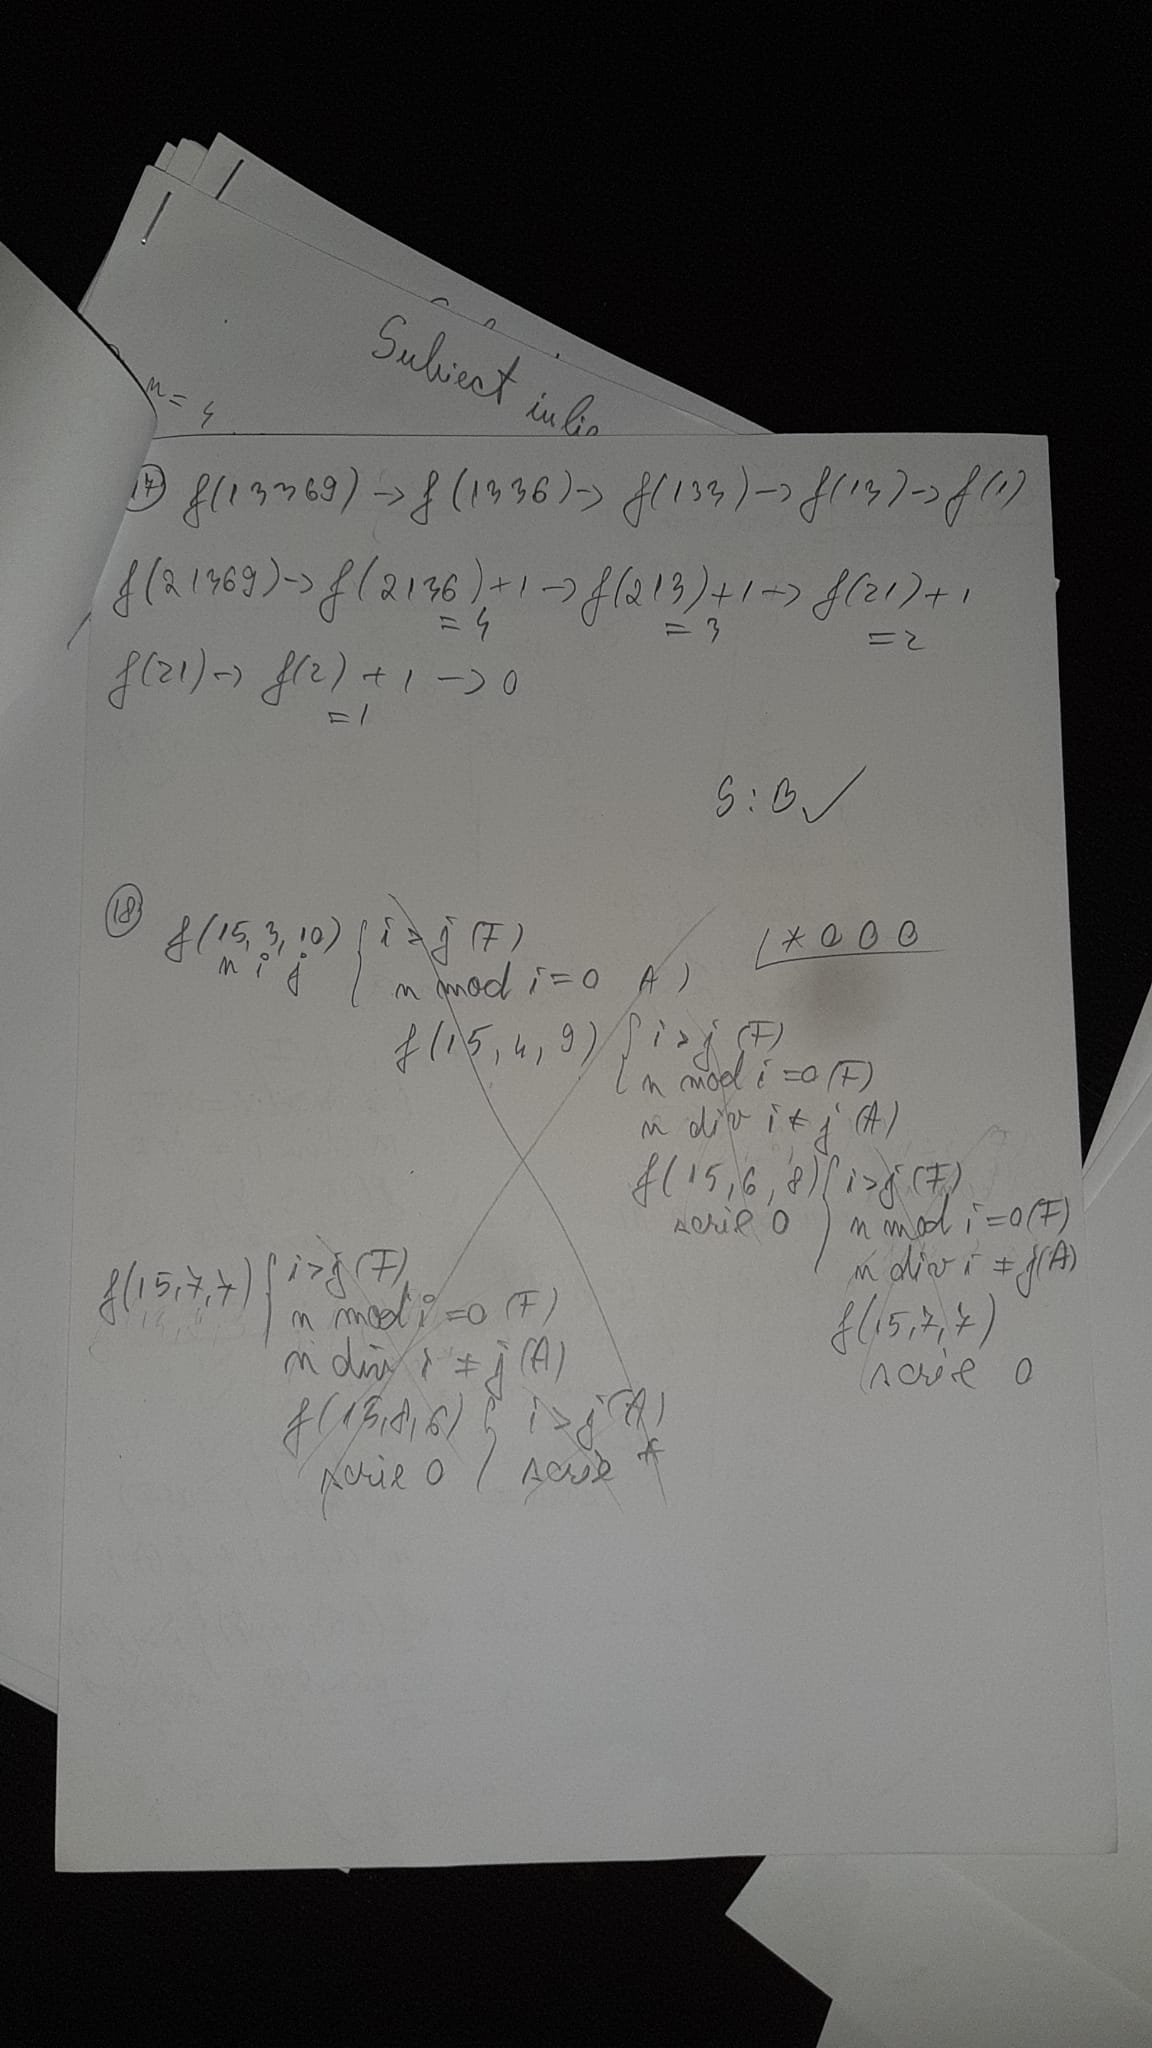 Subiect
n = 4
17) f(13369) -> f(1336) -> f(133) -> f(13) -> f(1)
f(21369) -> f(2136) + 1 -> f(213) + 1 -> f(21) + 1
= 4 = 3 = 2
f(21) -> f(2) + 1 -> 0
= 1
S: B ✓
18) f(15, 3, 10) { i > j (F)
n i j n mod i = 0 A)
* 0 0 0
f(15, 4, 9) { i > j (F)
n mod i = 0 (F)
n div i ≠ j (A)
f(15, 6, 8) { i > j (F)
scrie 0 n mod i = 0 (F)
n div i ≠ j (A)
f(15, 7, 7)
scrie 0
f(15, 7, 7) { i > j (F)
n mod i = 0 (F)
n div i ≠ j (A)
f(15, 8, 6) { i > j (A)
scrie 0 scrie *